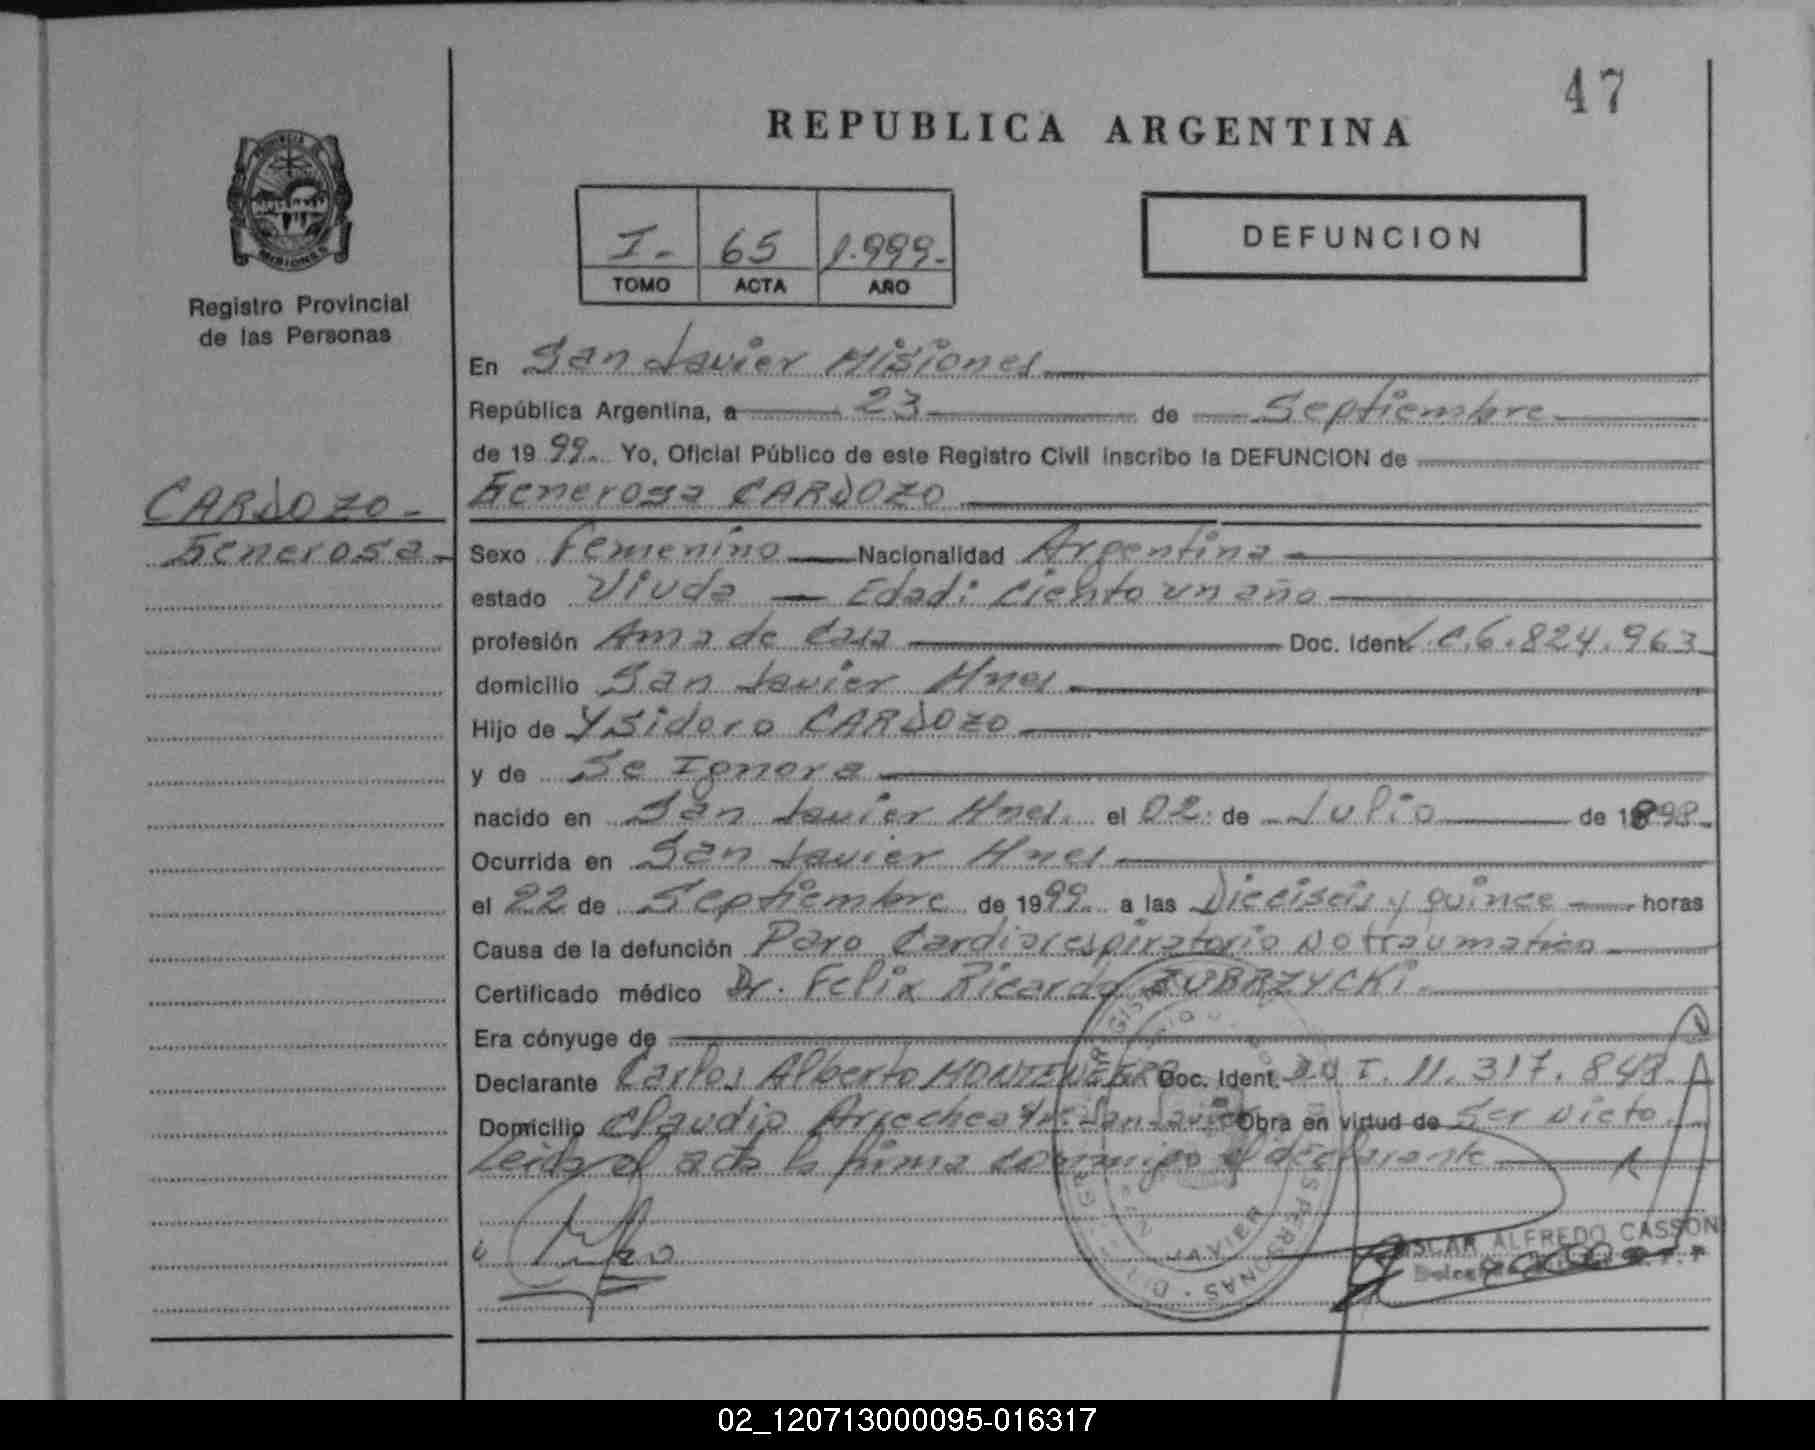 47
REPUBLICA ARGENTINA
PROVINCIA
MISIONES
Registro Provincial
de las Personas
I.- 65 1.999.-
TOMO ACTA AÑO
DEFUNCION
En San Javier Misiones
República Argentina, a 23 de Septiembre
de 1999. Yo, Oficial Público de este Registro Civil inscribo la DEFUNCION de
CARDOZO.-
Generosa CARDOZO
Generosa-
Sexo Femenino Nacionalidad Argentina
estado Viuda — Edad: ciento un año
profesión Ama de Casa Doc. Ident. L.C.6.824.963
domicilio San Javier Mnes
Hijo de Ysidoro CARDOZO
y de Se Ignora
nacido en San Javier Mnes. el 02 de Julio de 1898.
Ocurrida en San Javier Mnes
el 22 de Septiembre de 1999. a las Dieciseis y quince horas
Causa de la defunción Paro Cardiorespiratorio No traumatico
Certificado médico Dr. Felix Ricardo ZUBRZYCKi.
Era cónyuge de
Declarante Carlos Alberto MONTENEGRO Doc. Ident. D.N.I. 11.317.843
Domicilio Claudio Arrechea San Javier Obra en virtud de Ser Nieto.
Leida el acta la firma conmigo el declarante
OSCAR ALFREDO CASSON
JAVIER
PERSONAS
02_120713000095-016317